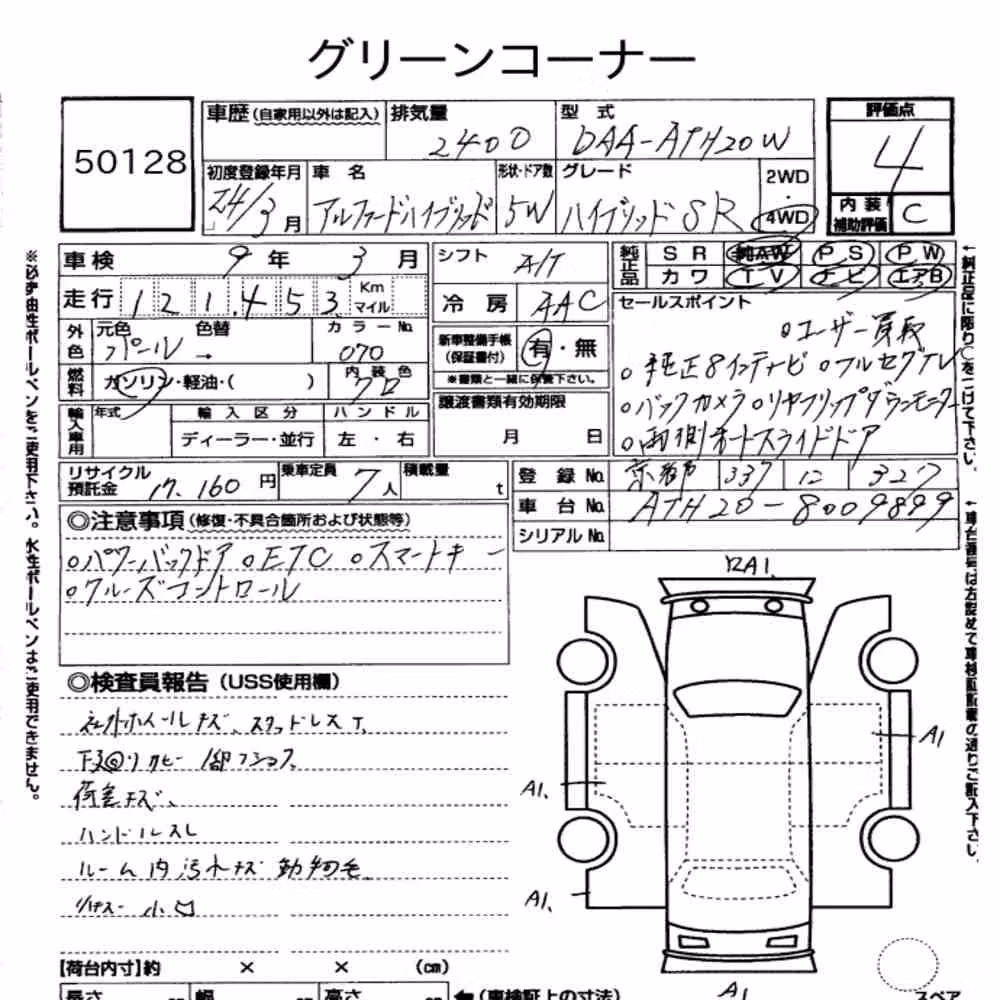 グリーンコーナー
50128
車歴 (自家用以外は記入) 排気量 2400 型式 DAA-ATH20W
評価点 4
初度登録年月 24/3月 車名 アルファードハイブリッド 形状・ドア数 5W グレード ハイブリッドSR 2WD・4WD
内装補助評価 C
車検 9年 3月 シフト A/T
純正品 SR 純AW PS PW
カワ TV ナビ エアB
走行 121,453 Km マイル 冷房 AAC
セールスポイント
外色 元色 パール 色替 → カラーNo. 070
新車整備手帳 (保証書付) 有・無
※書類と一緒に保管下さい。
燃料 ガソリン・軽油・( ) 内装色 クロ
。ユーザー買取
。純正8インチナビ 。フルセグTV
。バックカメラ 。リヤフリップダウンモニター
。両側オートスライドドア
輸入車用 年式 輸入区分 ディーラー・並行 ハンドル 左・右
譲渡書類有効期限 月 日
リサイクル預託金 17,160円 乗車定員 7人 積載量 t
登録No. 京都 337 に 327
車台No. ATH20-8009899
シリアルNo.
◎注意事項 (修復・不具合箇所および状態等)
。パワーバックドア 。ETC 。スマートキー
。クルーズコントロール
◎検査員報告 (USS使用欄)
社外ホイールキズ、スタッドレスT、
荷室キズ、
ハンドルスレ
ルーム内汚れキズ 動物毛
小
RA1.
A1
A1.
A1.
A1
【荷台内寸】約 × × (cm)
長さ 幅 高さ ←(車検証上の寸法)
スペア
※必ず油性ボールペンをご使用下さい。水性ボールペンはご使用できません。
←純正品に限り○をつけて下さい。
←車台番号は打刻認めて車検証記載の通りご記入下さい。